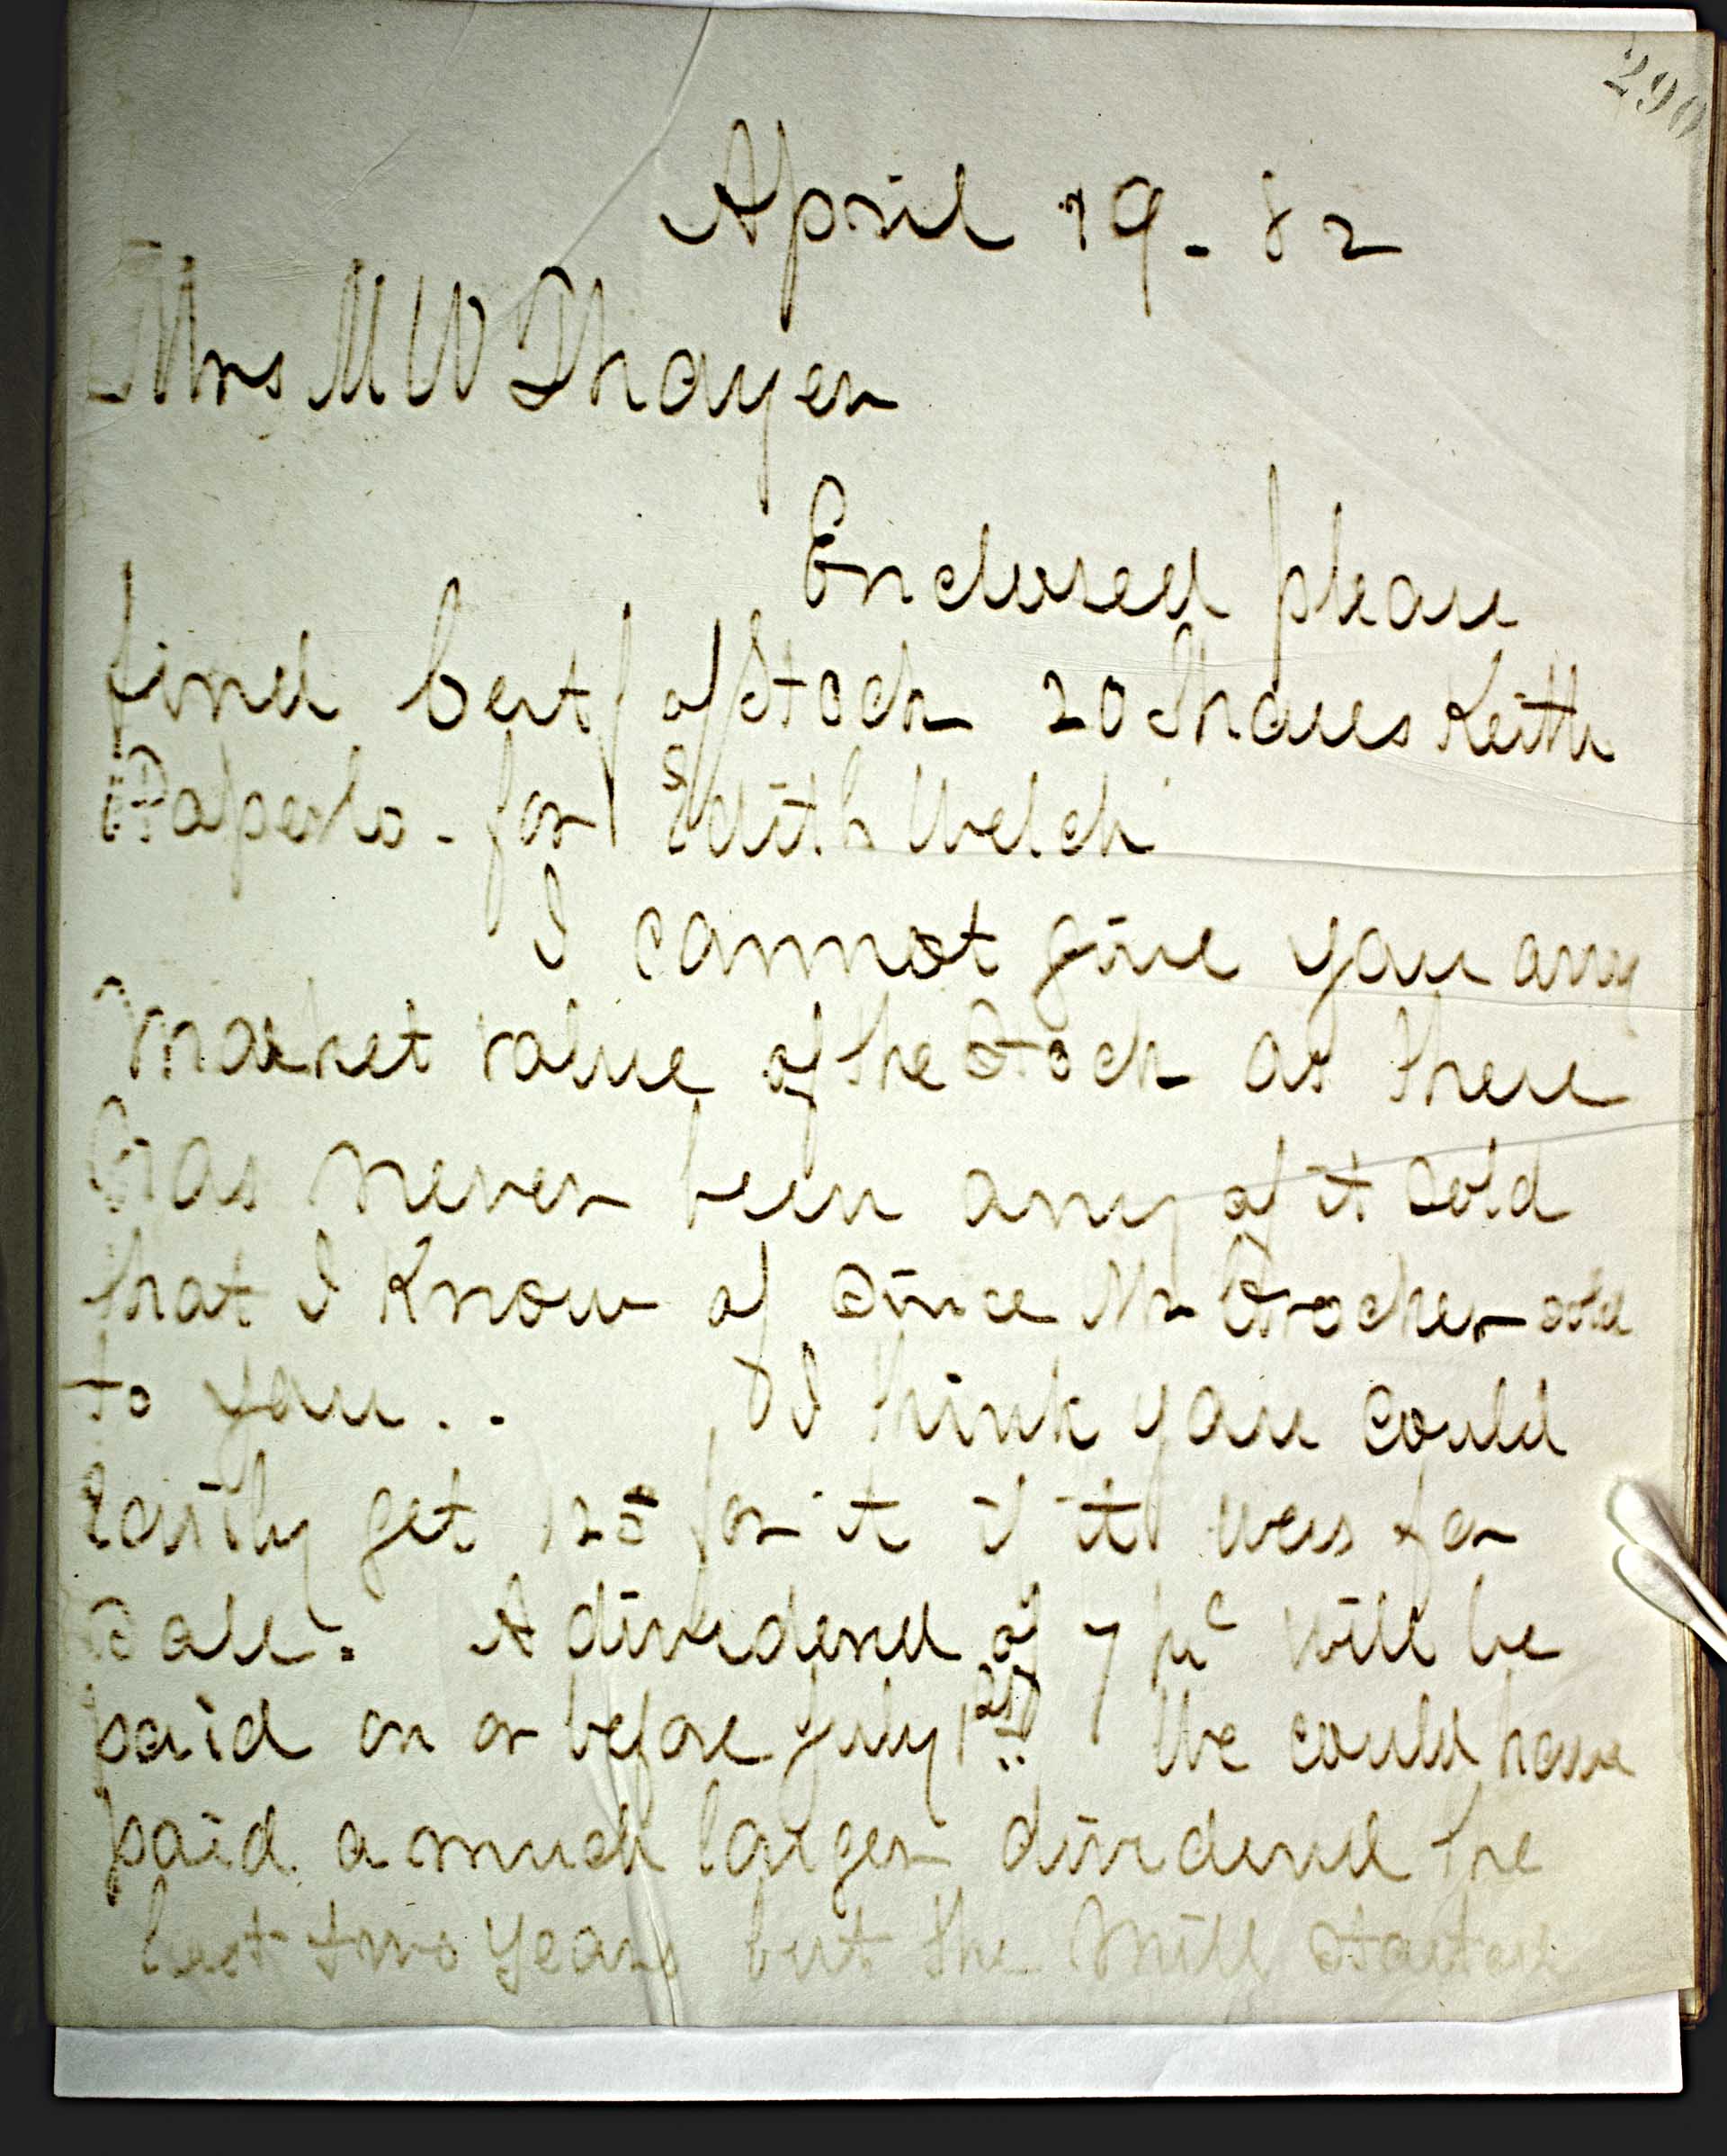 290
April 19 - 82
Mrs M W Thayer
Enclosed please
find Cert of Stock 20 Shares Keith
Paper Co - for Edith Welch
I cannot give you any
market value of the Stock as there
has never been any of it sold
that I Know of since Mr Crocker sold
to you . . I think you could
Easily get 125 for it if it was for
Sale. A dividend of 7 pr ct will be
paid on or before July 1st We could have
paid a much larger dividend the
last two years but the Mill started